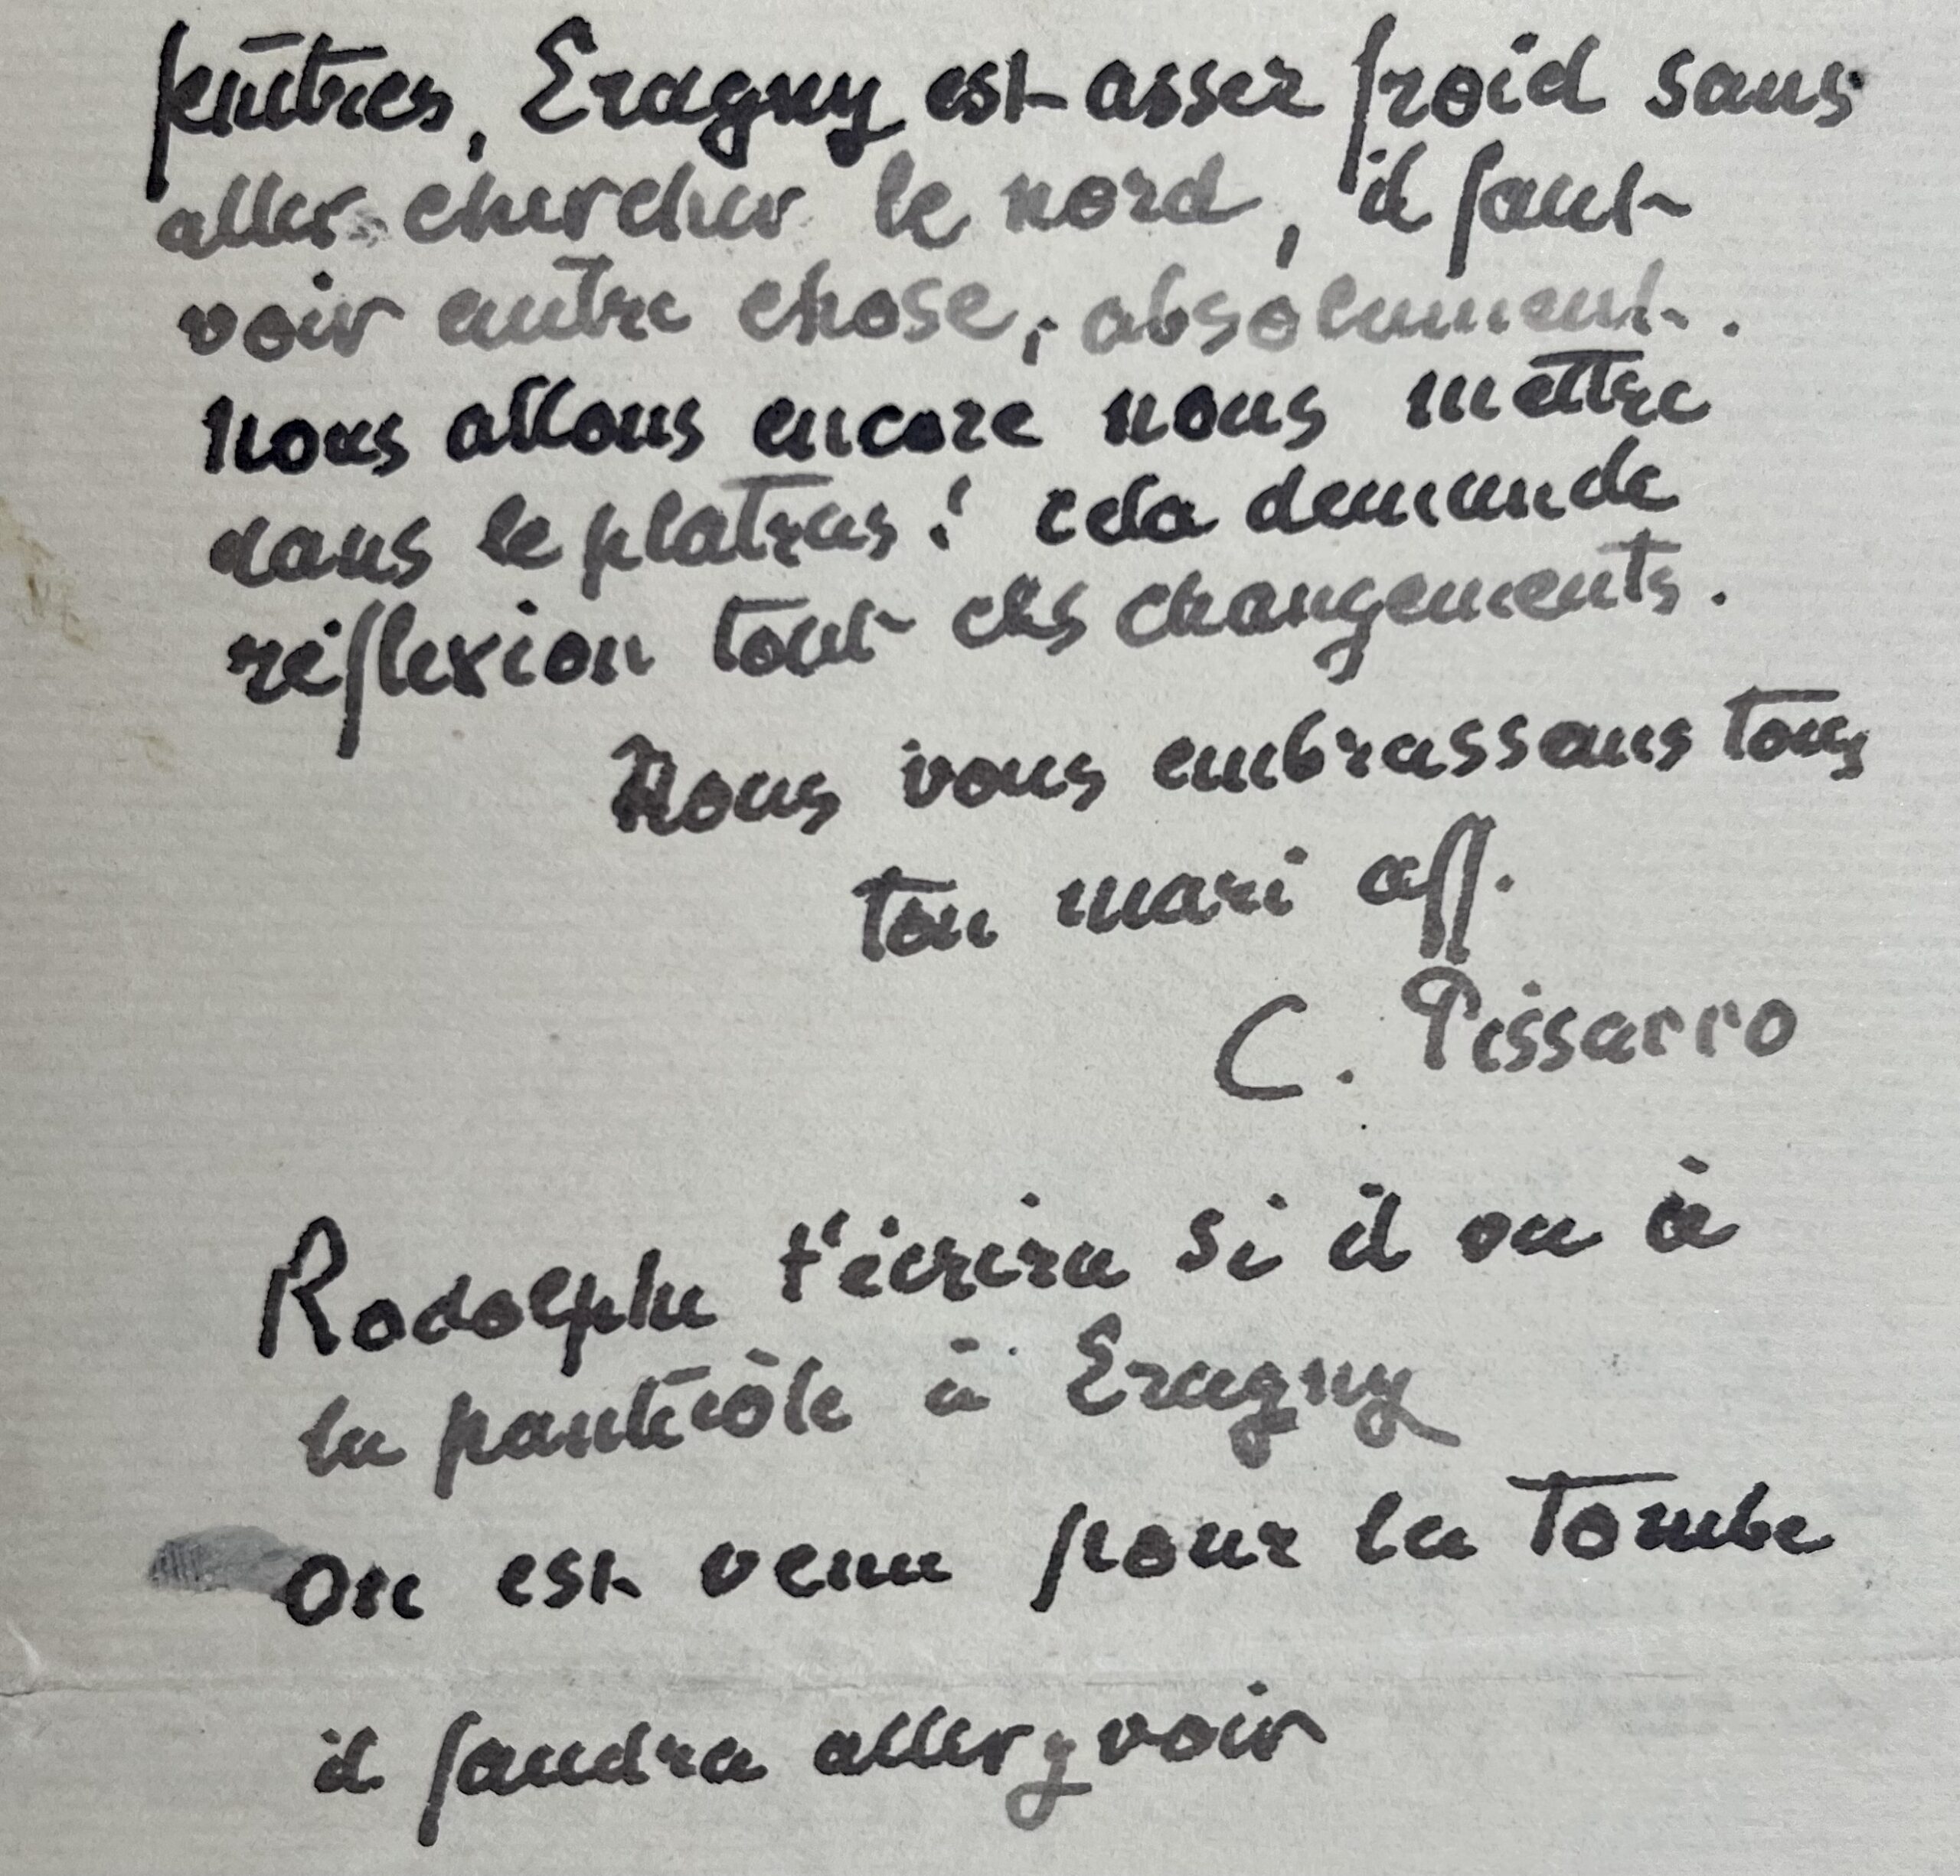 peintres, Eragny est assez froid sans
aller chercher le nord, il faut
voir autre chose, absolument.
nous allons encore nous mettre
dans le platras! cela demande
réflexion tout ces changements.
Nous vous embrassons tous
ton mari aff.
C. Pissarro
Rodolphe t'écrira si il va à
la à Eragny
on est venu pour la tombe
il faudra aller y voir